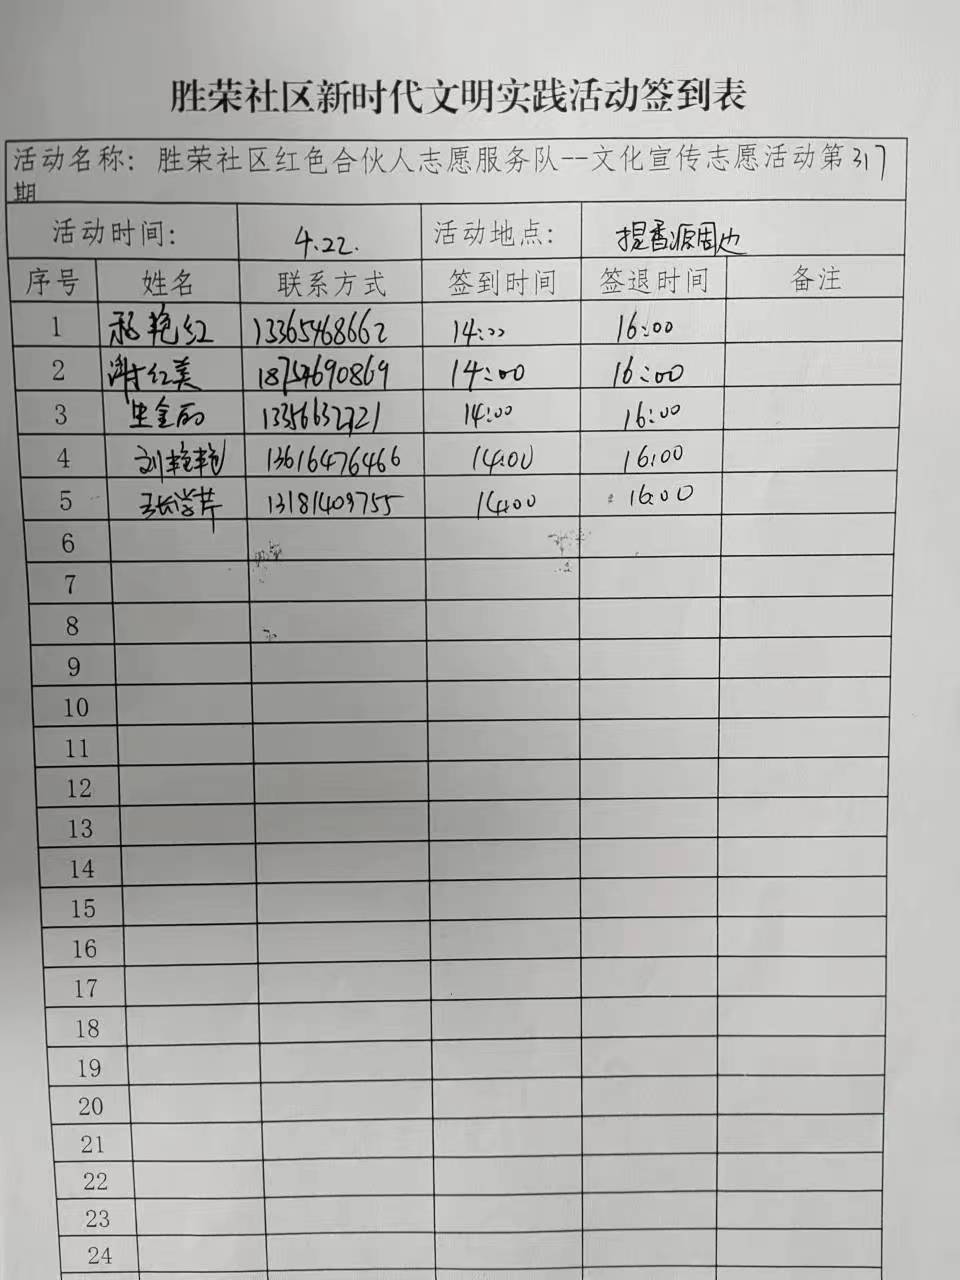 胜荣社区新时代文明实践活动签到表
活动名称：胜荣社区红色合伙人志愿服务队--文化宣传志愿活动第317
期
活动时间： 4.22. 活动地点： 提香源周边
序号 姓名 联系方式 签到时间 签退时间 备注
1 艳红 13365468662 14:00 16:00
2 谢红美 18754690869 14:00 16:00
3 生金丽 14:00 16:00
4 刘艳艳 13616476466 14:00 16:00
5 张学芹 13181409755 14:00 16:00
6
7
8
9
10
11
12
13
14
15
16
17
18
19
20
21
22
23
24